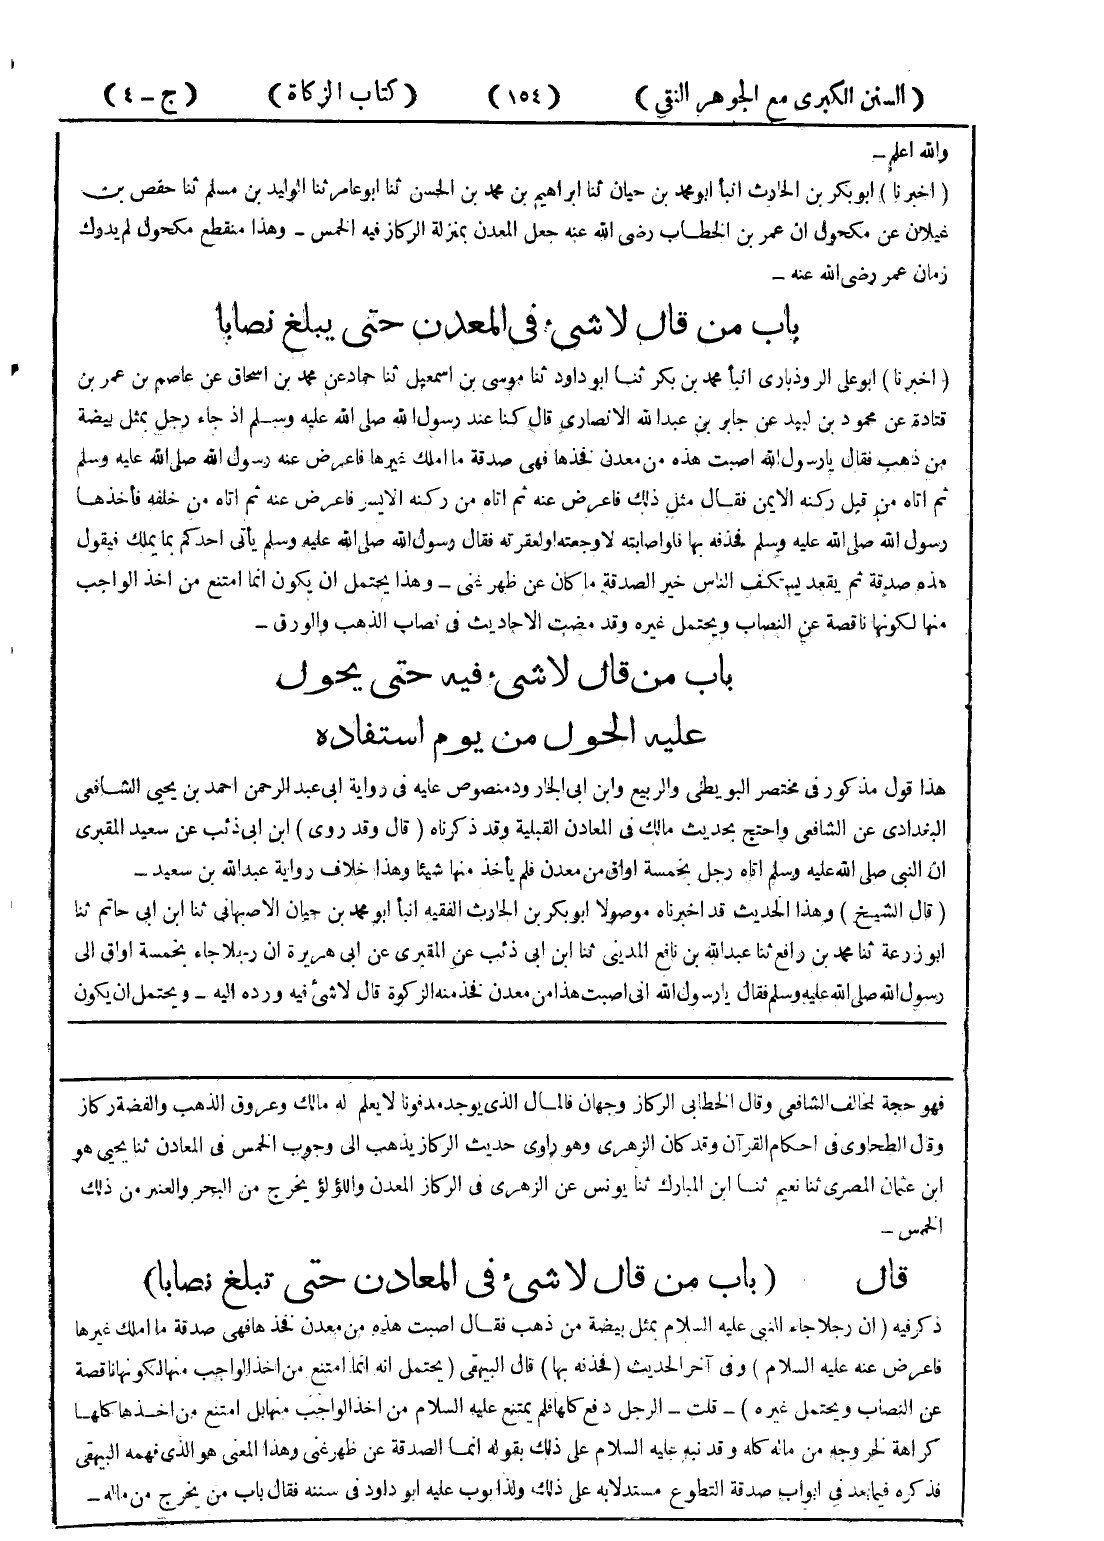 ( السنن الكبرى مع الجوهر النقي ) ( ١٥٤ ) ( كتاب الزكاة ) ( ج ـ ٤ )
والله اعلم ـ
( اخبرنا ) ابو بكر بن الحارث انبأ ابو محمد بن حيان ثنا ابراهيم بن محمد بن الحسن ثنا ابو عامر ثنا الوليد بن مسلم ثنا حفص بن
غيلان عن مكحول ان عمر بن الخطاب رضى الله عنه جعل المعدن بمنزلة الركاز فيه الخمس ـ وهذا منقطع مكحول لم يدرك
زمان عمر رضى الله عنه ـ
باب من قال لا شىء فى المعدن حتى يبلغ نصابا
( اخبرنا ) ابو على الروذبارى انبأ محمد بن بكر ثنا ابو داود ثنا موسى بن اسمعيل ثنا حماد عن محمد بن اسحاق عن عاصم بن عمر بن
قتادة عن محمود بن لبيد عن جابر بن عبد الله الانصارى قال كنا عند رسول الله صلى الله عليه وسلم اذ جاء رجل بمثل بيضة
من ذهب فقال يارسول الله اصبت هذه من معدن فخذها فهى صدقة ما املك غيرها فاعرض عنه رسول الله صلى الله عليه وسلم
ثم اتاه من قبل ركنه الايمن فقال مثل ذلك فاعرض عنه ثم اتاه من ركنه الايسر فاعرض عنه ثم اتاه من خلفه فأخذها
رسول الله صلى الله عليه وسلم فخذفه بها فلو اصابته لاوجعته اولعقرته فقال رسول الله صلى الله عليه وسلم يأتى احدكم بما يملك فيقول
هذه صدقة ثم يقعد يستكف الناس خير الصدقة ما كان عن ظهر غنى ـ وهذا يحتمل ان يكون انما امتنع من اخذ الواجب
منها لكونها ناقصة عن النصاب ويحتمل غيره وقد مضت الاحاديث فى نصاب الذهب والورق ـ
باب من قال لا شىء فيه حتى يحول
عليه الحول من يوم استفاده
هذا قول مذكور فى مختصر البويطى والربيع وابن ابى الجارود منصوص عليه فى رواية ابى عبد الرحمن احمد بن يحيى الشافعى
البغدادى عن الشافعى واحتج بحديث مالك فى المعادن القبلية وقد ذكرناه ( قال وقد روى ) ابن ابى ذئب عن سعيد المقبرى
ان النبى صلى الله عليه وسلم اتاه رجل بخمسة اواق من معدن فلم يأخذ منها شيئا وهذا خلاف رواية عبد الله بن سعيد ـ
( قال الشيخ ) وهذا الحديث قد اخبرناه موصولا ابو بكر بن الحارث الفقيه انبأ ابو محمد بن حيان الاصبهانى ثنا ابن ابى حاتم ثنا
ابو زرعة ثنا محمد بن رافع ثنا عبد الله بن نافع المدينى ثنا ابن ابى ذئب عن المقبرى عن ابى هريرة ان رجلا جاء بخمسة اواق الى
رسول الله صلى الله عليه وسلم فقال يا رسول الله انى اصبت هذا من معدن فخذ منه الزكوة قال لا شئ فيه ورده اليه ـ ويحتمل ان يكون
فهو حجة لمخالف الشافعى وقال الخطابى الركاز وجهان فالمال الذى يوجد مدفونا لا يعلم له مالك وعروق الذهب والفضة ركاز
وقال الطحاوى فى احكام القرآن وقد كان الزهرى وهو راوى حديث الركاز يذهب الى وجوب الخمس فى المعادن ثنا يحيى هو
ابن عثمان المصرى ثنا نعيم ثنا ابن المبارك ثنا يونس عن الزهرى فى الركاز المعدن واللؤلؤ يخرج من البحر والعنبر من ذلك
الخمس ـ
قال ( باب من قال لا شىء فى المعادن حتى تبلغ نصابا )
ذكر فيه ( ان رجلا جاء النبى عليه السلام بمثل بيضة من ذهب فقال اصبت هذه من معدن فخذها فهى صدقة ما املك غيرها
فاعرض عنه عليه السلام ) وفى آخر الحديث ( فخذفه بها ) قال البيهقى ( يحتمل انه انما امتنع من اخذ الواجب منها لكونها ناقصة
عن النصاب ويحتمل غيره ) ـ قلت ـ الرجل دفع كلها فلم يمتنع عليه السلام من اخذ الواجب منها بل امتنع من اخذها كلها
كراهة لخروجه من ماله كله وقد نبه عليه السلام على ذلك بقوله انما الصدقة عن ظهر غنى وهذا المعنى هو الذى فهمه البيهقى
فذكره فيما بعد في ابواب صدقة التطوع مستدلا به على ذلك ولذا بوب عليه ابو داود فى سننه فقال باب من يخرج من ماله ـ